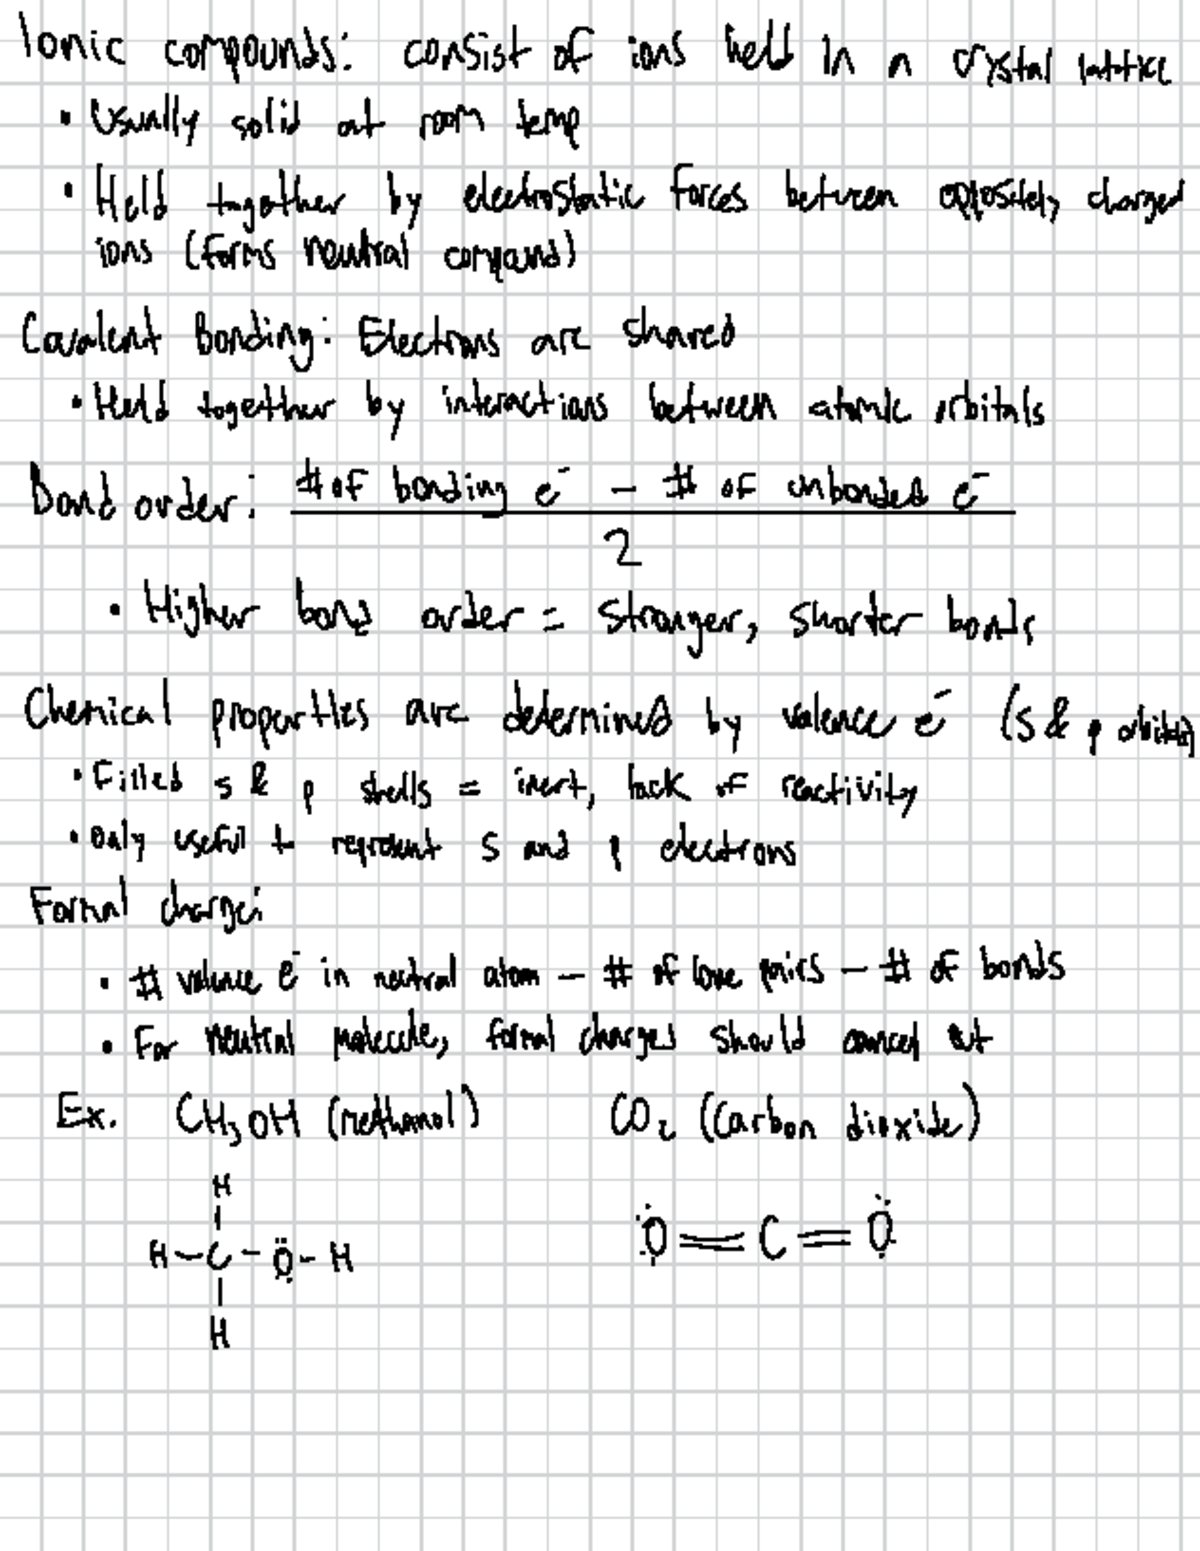 Ionic compounds: consist of ions held in a crystal lattice
• Usually solid at room temp
• Held together by electrostatic forces between oppositely charged
ions (forms neutral compound)
Covalent Bonding: Electrons are shared
• Held together by interactions between atomic orbitals
Bond order: # of bonding e⁻ – # of unbonded e⁻
2
• Higher bond order = stronger, shorter bonds
Chemical properties are determined by valence e⁻ (s & p orbitals)
• Filled s & p shells = inert, lack of reactivity
• Only useful to represent s and p electrons
Formal charge:
• # valence e⁻ in neutral atom – # of lone pairs – # of bonds
• For neutral molecule, formal charges should cancel out
Ex. CH₃OH (methanol) CO₂ (Carbon dioxide)
H
H – C – O – H O = C = O
H